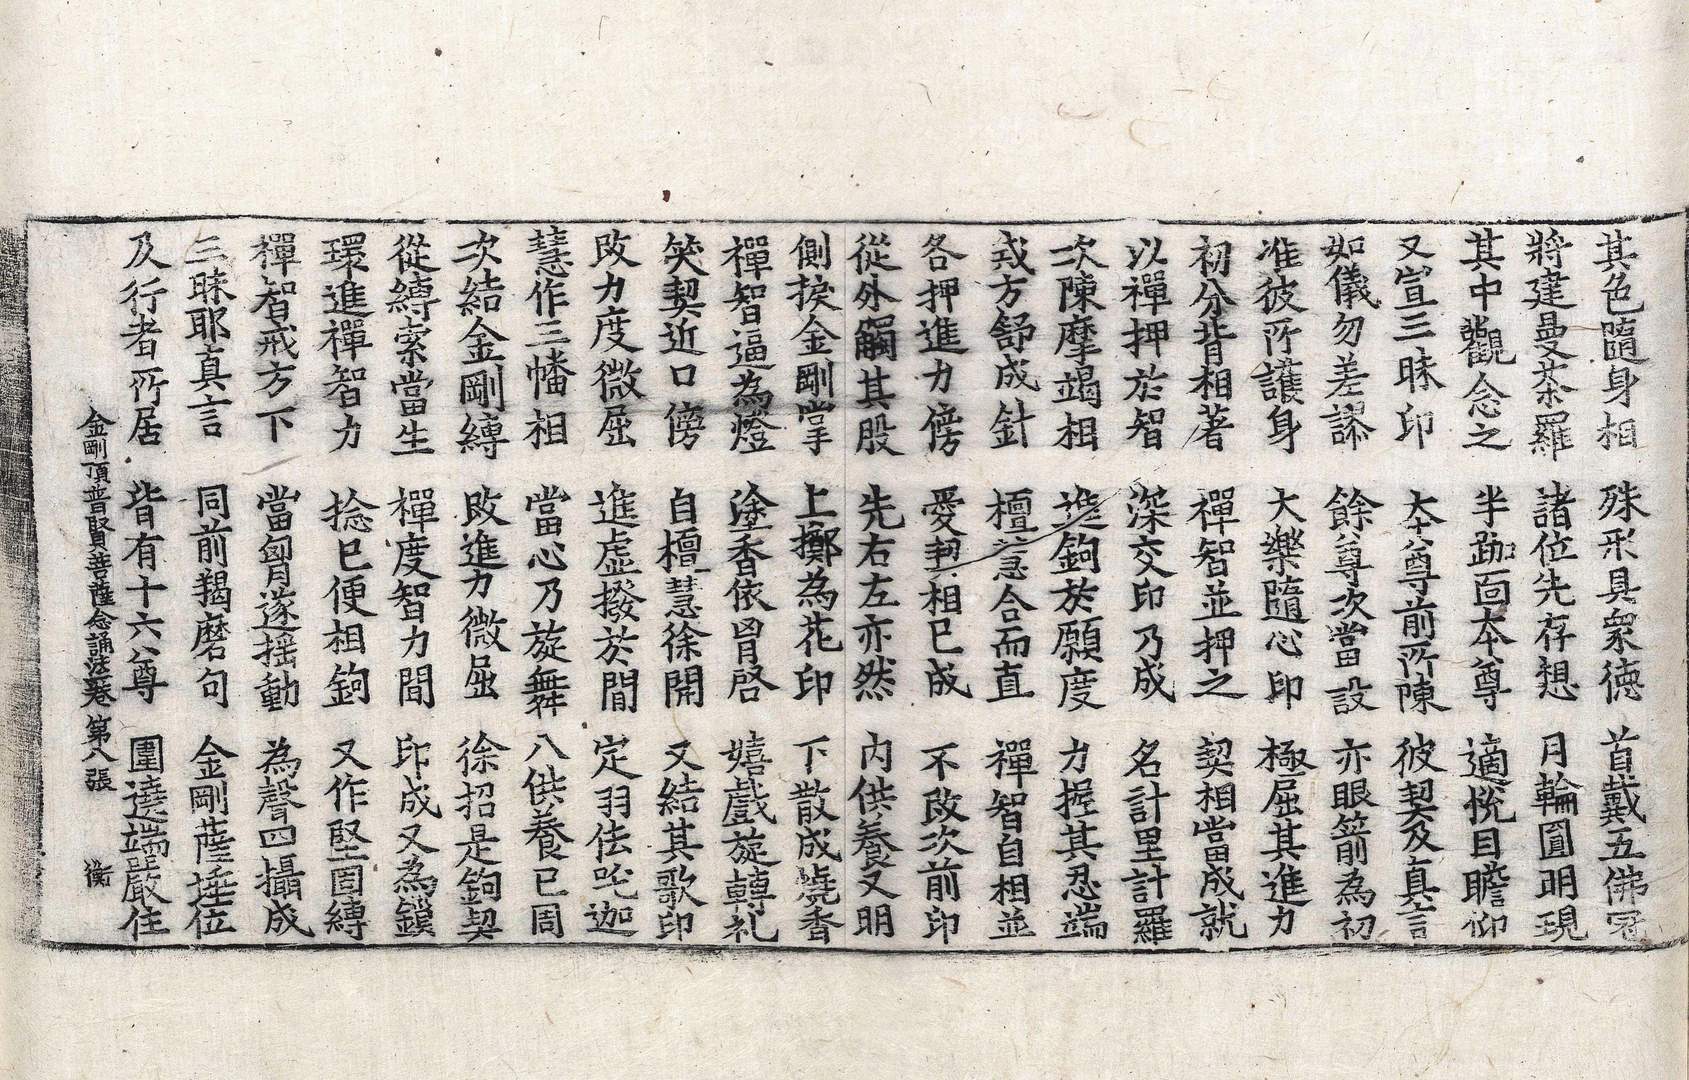 其色隨身相 殊形具衆徳 首戴五佛冠
將建曼荼羅 諸位先存想 月輪圓明現
其中觀念之 半跏面本尊 適悅目瞻仰
又宣三昧印 大尊前所陳 彼契及真言
如儀勿差謬 餘尊次當設 亦眼箭為初
准彼所護身 大樂隨心印 極屈其進力
初分背相著 禪智並押之 契相當成就
以禪押於智 深交印乃成 名計里計羅
次陳摩竭相 進鉤於願度 力握其忍端
戒方舒成針 檀慧合而直 禪智自相並
各押進力傍 愛契相已成 不改次前印
從外觸其股 先右左亦然 內供養又明
側捩金剛掌 上擲為花印 下散成燒香
禪智逼為燈 塗香依胷啓 嬉戲旋轉礼
笑契近口傍 自檀慧徐開 又結其歌印
改力度微屈 進虛撥於間 定羽佉吒迦
慧作三幡相 當心乃旋舞 八供養已周
次結金剛縛 改進力微屈 徐招是鉤契
從縛索當生 禪度智力間 印成又為鎖
環進禪智力 捻已便相鉤 又作堅固縛
禪智戒方下 當匈遂搖動 為聲四攝成
三昧耶真言 同前羯磨句 金剛薩埵位
及行者所居 皆有十六尊 圍遶端嚴住
金剛頂普賢菩薩念誦法卷 第八張 衡